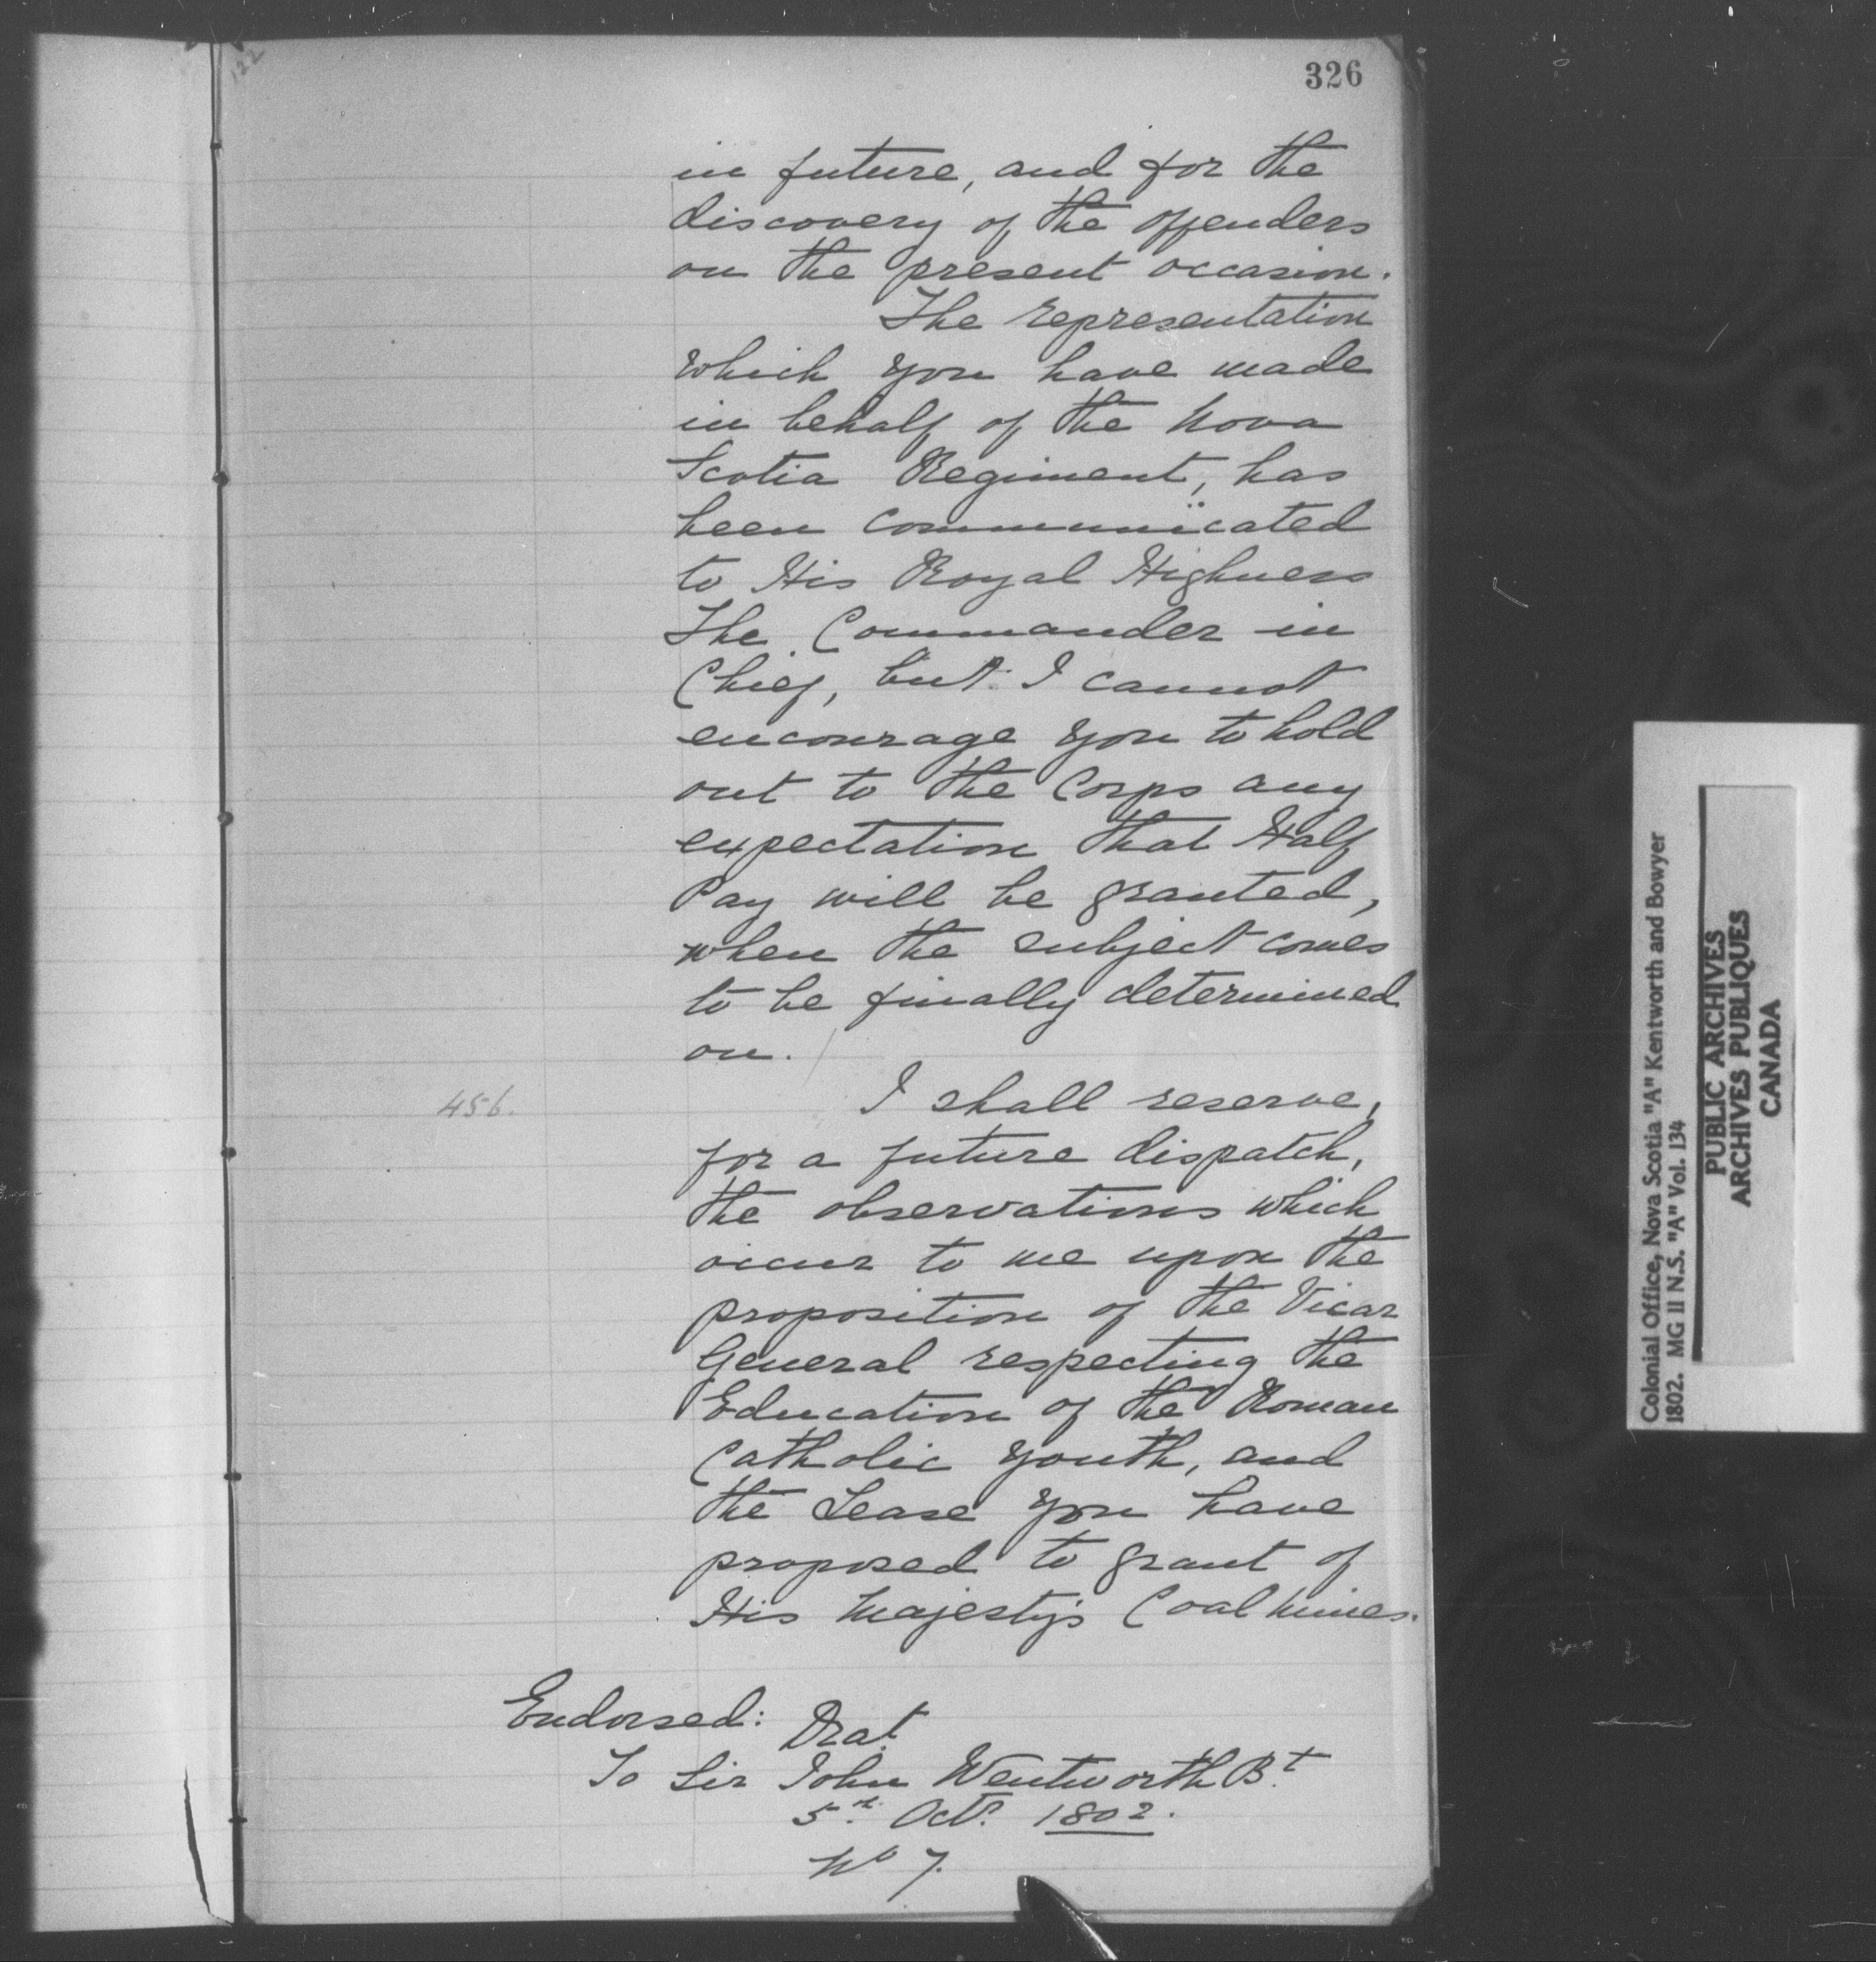 122
326
in future, and for the
discovery of the offenders
on the present occasion.
The representation
which you have made
in behalf of the Nova
Scotia Regiment, has
been communicated
to His Royal Highness
The Commander in
Chief, but I cannot
encourage you to hold
out to the Corps any
expectation that Half
Pay will be granted,
when the subject comes
to be finally determined
on.
456.
I shall reserve,
for a future dispatch,
the observations which
occur to me upon the
proposition of the Vicar
General respecting the
Education of the Roman
Catholic Youth, and
the Lease you have
proposed to grant of
His Majesty's Coal mines.
Endorsed: Drat
To Sir John Wentworth Bt
5th Octr 1802.
No 7.
Colonial Office, Nova Scotia "A" Kentworth and Bowyer
1802. MG II N.S. "A" Vol. 134
PUBLIC ARCHIVES
ARCHIVES PUBLIQUES
CANADA